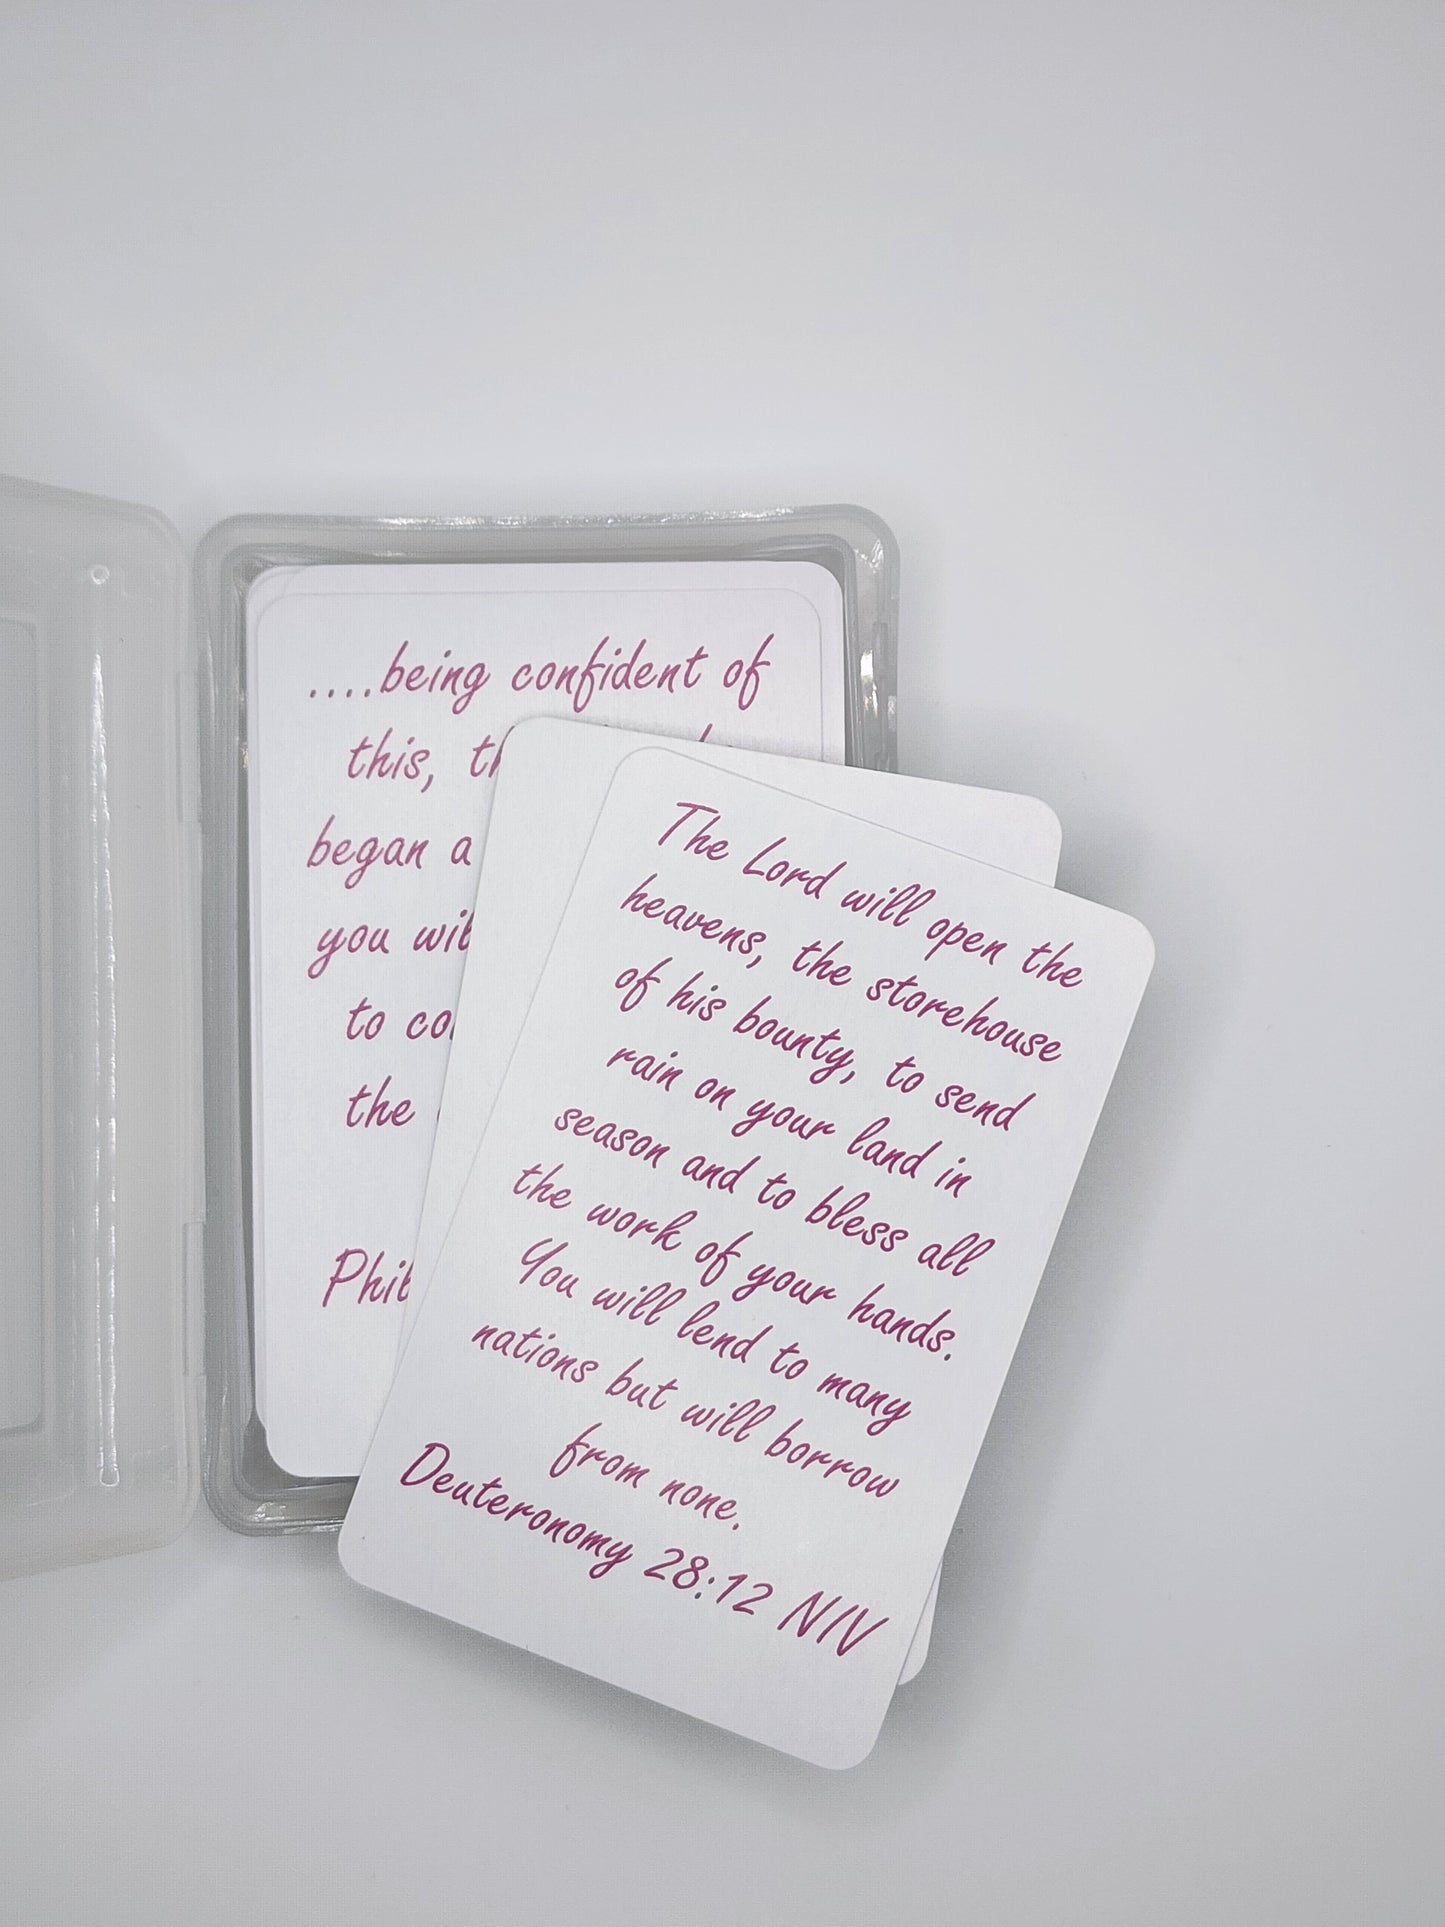 ....being confident of
this,
began a
you
to
the
The Lord will open the
heavens, the storehouse
of his bounty, to send
rain on your land in
season and to bless all
the work of your hands.
You will lend to many
nations but will borrow
from none.
Deuteronomy 28:12 NIV